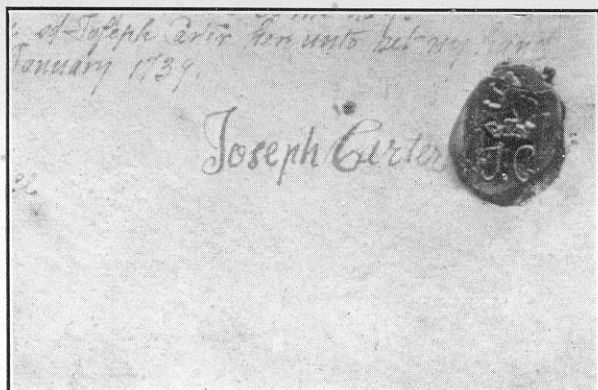 sd Joseph Carter her unto set my hand
January 1739.
Joseph Carter